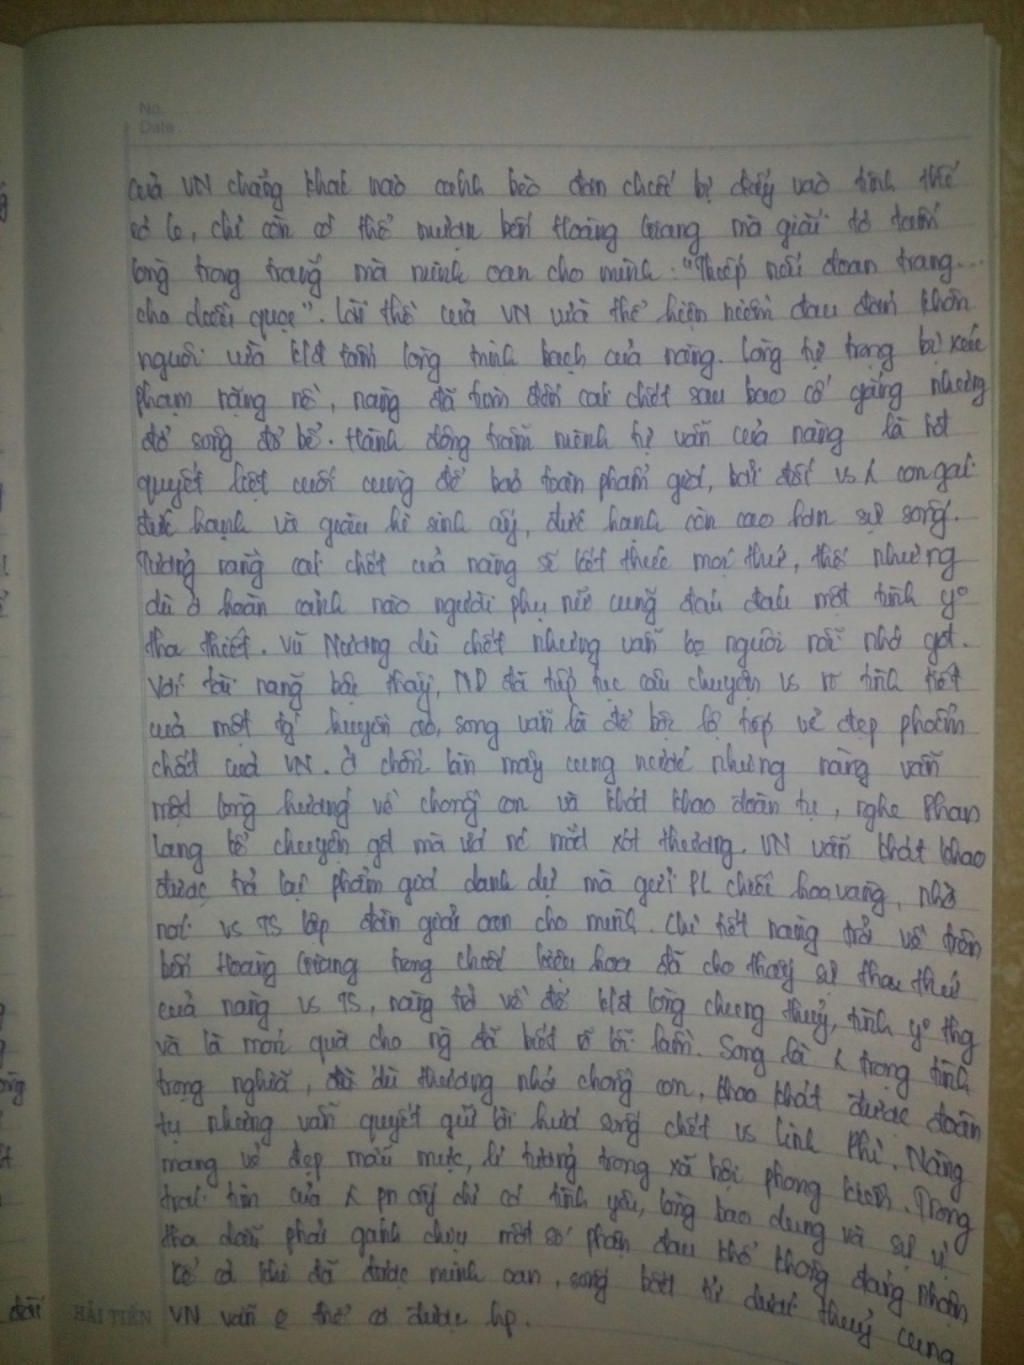 No.
Date
của VN chẳng khác nào cánh bèo đơn chiếc bị đẩy vào tình thế
cô lo, chỉ còn có thể mượn bến Hoàng Giang mà giải tỏ tấm
lòng trong trắng mà minh oan cho mình: "Thiếp nếu đoan trang...
cho diều quạ". Lời thề của VN vừa thể hiện niềm đau đớn khôn
nguôi vừa kđ tấm lòng trinh bạch của nàng. Lòng tự trọng bị xúc
phạm nặng nề, nàng đã tìm đến cái chết sau bao cố gắng nhưng
đổ sông đổ bể. Hành động trầm mình tự vẫn của nàng là
quyết liệt cuối cùng để bảo toàn phẩm giá, bởi đối vs con gái
đức hạnh và giàu hi sinh ấy, đức hạnh còn cao hơn sự sống.
Tưởng rằng cái chết của nàng sẽ kết thúc mọi thứ, thế nhưng
dù ở hoàn cảnh nào người phụ nữ cũng đau đáu một tình yº
tha thiết. Vũ Nương dù chết nhưng vẫn bç người nỗi nhớ gđ.
Với tài năng bậc thầy, ND đã tiếp tục câu chuyện vs tình tiết
của một huyền ảo, song vẫn là để bộc lộ tiếp vẻ đẹp phẩm
chất của VN. Ở chốn làn mây cung nước nhưng nàng vẫn
một lòng hướng về chồng con và khát khao đoàn tụ, nghe Phan
Lang kể chuyện gđ mà ứa nc mắt xót thương. VN vẫn khát khao
được trả lại phẩm giá danh dự mà gửi PL chiếc hoa vàng, nhờ
nói vs TS lập đàn giải oan cho mình. Chi tiết nàng trở về trên
bến Hoàng Giang trong chiếc kiệu hoa đã cho thấy sự tha thứ
của nàng vs TS, nàng trở về để kđ lòng chung thuỷ, tình yº thg
và là món quà cho ng đã biết rõ lỗi lầm. Song là trọng tình
trọng nghĩa, dù thương nhớ chồng con, khao khát được đoàn
tụ nhưng vẫn quyết giữ lời hứa sống chết vs Linh Phi. Nàng
mang vẻ đẹp mẫu mực, lí tưởng trong xã hội phong kiến. Trong
trái tim của pn ấy chỉ có tình yêu, lòng bao dung và sự vị
tha dẫu phải gánh chịu một số phận đau khổ không đáng nhận
Kể cả khi đã được minh oan, sống bất tử dưới thuỷ cung
VN vẫn thể có được hp.
HẢI TIẾN